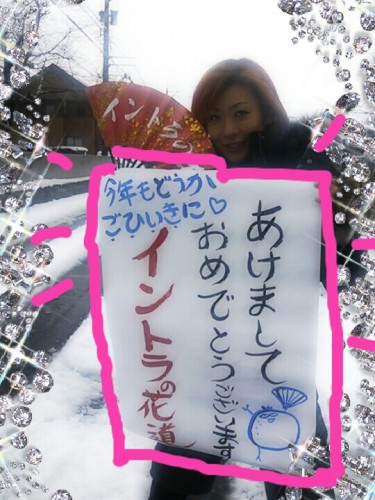 あけまして
おめでとうございます
今年もどうか
ごひいきに♡
イントラの花道